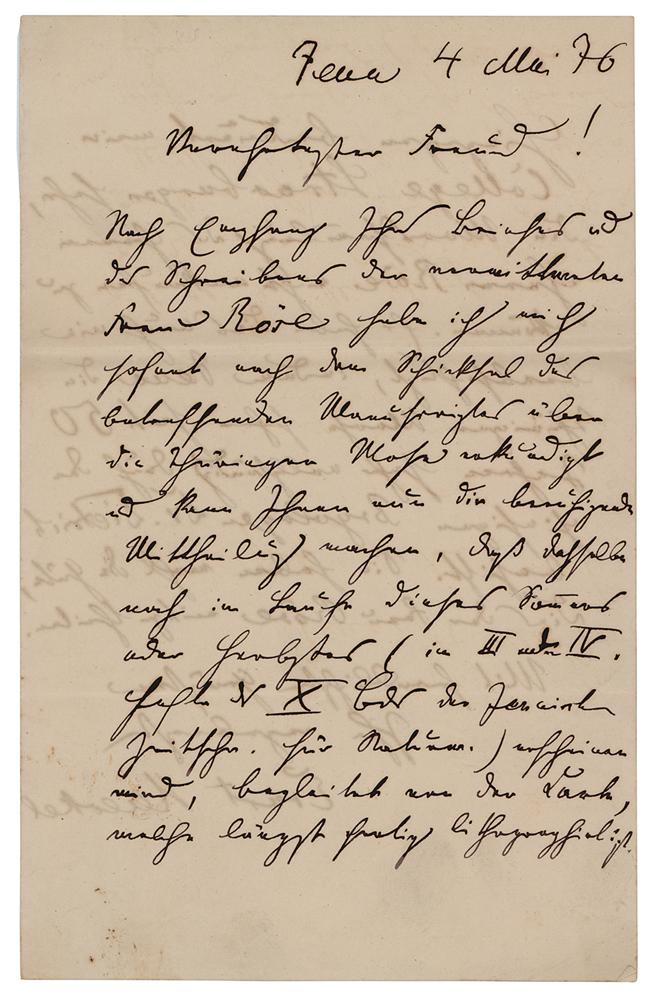 Jena 4 Mai 76
Verehrtester Freund!
Nach Empfang Ihres Briefes ud
des Schreibens der verwittweten
Frau Röse habe ich mich
sofort nach dem Schicksal des
betreffenden Manuscriptes über
die Thüringer Moose erkundigt
ud kann Ihnen nun die beruhigende
Mittheilung machen, daß dasselbe
noch im Laufe dieses Som̅ers
oder Herbstes (im III oder IV.
Hefte des X Bds der Jenaischen
Zeitschr. für Naturw.) erscheinen
wird, begleitet von der Karte,
welche längst fertig lithographiert ist.